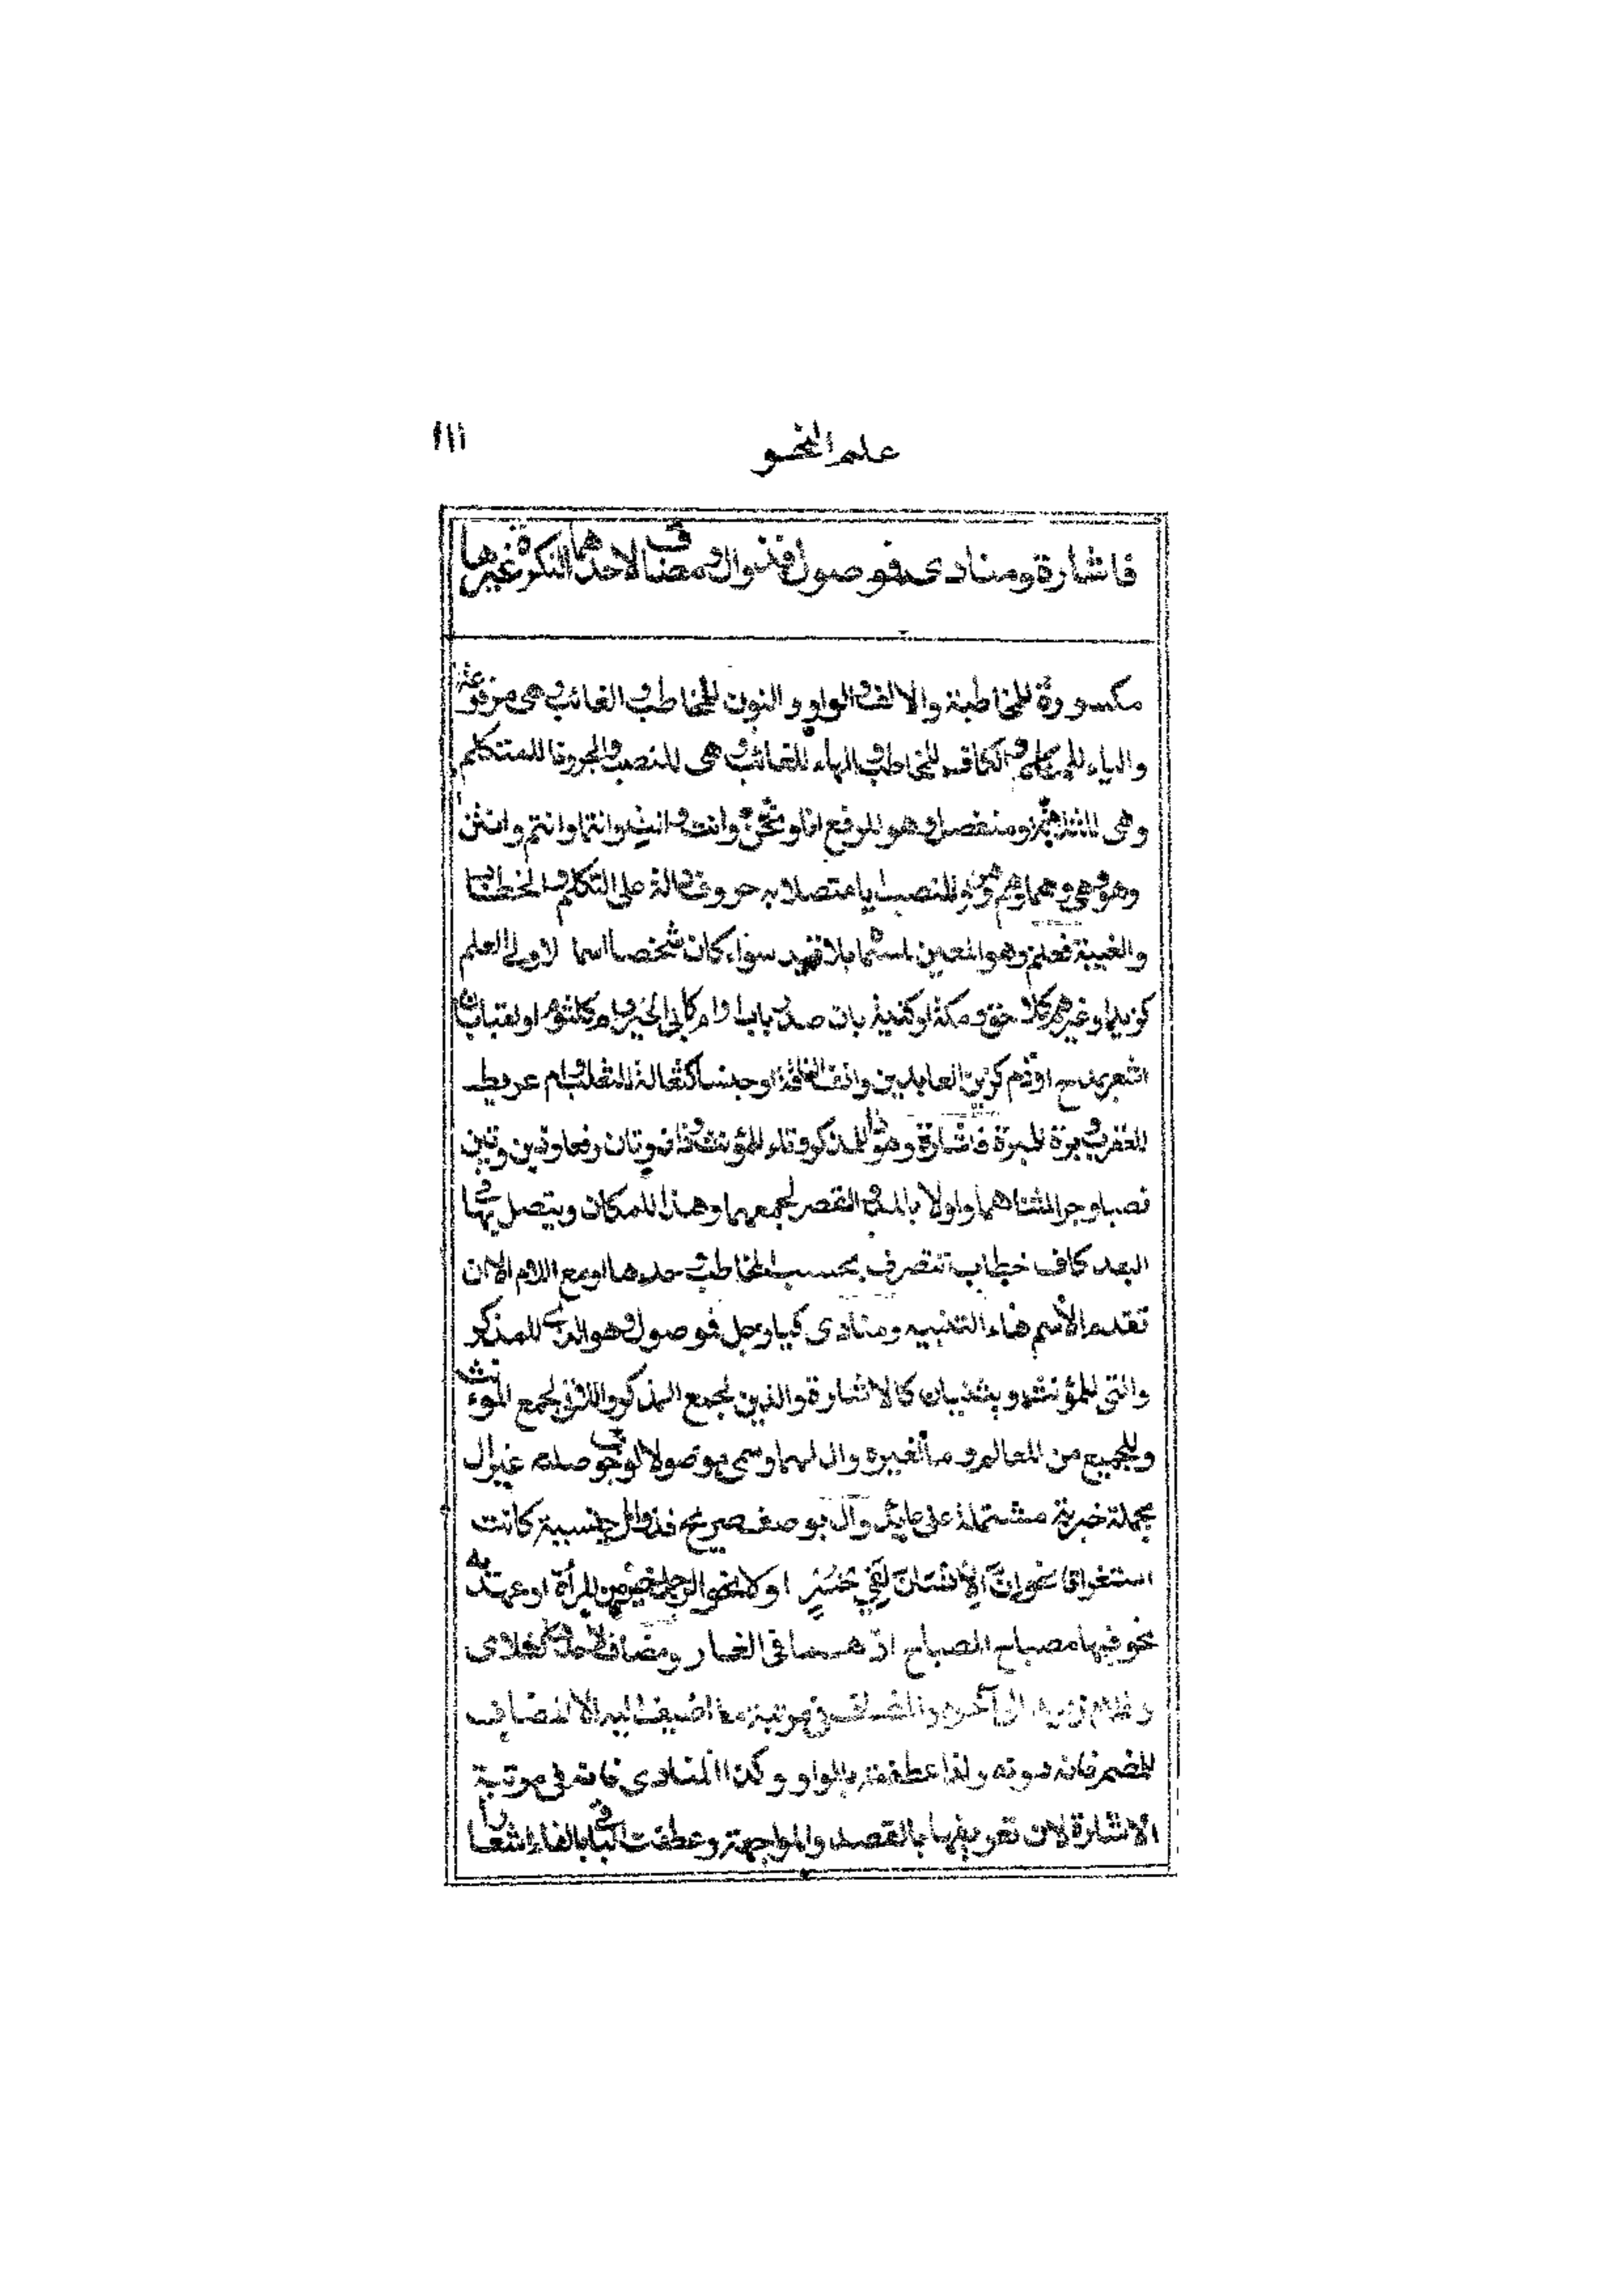 علم النحو
١١١
فاشارة ومنادى فموصول فذوال ومضاف لاحدهما النكرة غيرها
مكسورة للمخاطبة والالف والواو والنون للمخاطب والغائب وهى مرفوعة
والياء للمتكلم والكاف للمخاطب والهاء للغائب وهى للنصب والجر ونا للمتكلم
وهى للثلاثة ومنفصل وهو للرفع انا ونحن وانت وانت وانتما وانتم وانتن
وهو وهى وهما وهم وهن وللنصب ايا متصلا به حروف دالة على التكلم والخطاب
والغيبة فعلم وهو المعين لمسماه بلا قيد سواء كان شخصا اسما لاولى العلم
كزيد او غيرهم كلاحق ومكة او كنية بان صدر باب او ام كابى الخير وام كلثوم او لقبا بان
اشعر بمدح او ذم كزين العابدين وانف الناقة او جنسا كثعالة للثعلب وام عريط
للعقرب وبرة للمبرة فاشارة وهو ذا للمذكر وتاء للمؤنث وذان وتان رفعا وذين وتين
نصبا وجرا لمثناهما واولا بالمد والقصر لجمعهما وهنا للمكان ويتصل بها فى
البعد كاف خطاب تتصرف بحسب المخاطب وحدها او مع اللام الا ان
تقدم الاسم هاء التنبيه ومنادى كيا رجل فموصول وهو الذى للمذكر
والتى للمؤنث ويثنيان كالاشارة والذين لجمع المذكر واللاتى لجمع المؤنث
وللجميع من للعالم وما لغيره وال لهما وسمى موصولا لوجوب صلته غير ال
بجملة خبرية مشتملة على عائد وال بوصف صريح فذو ال جنسية كانت
استغراقا نحو ان الانسان لفى خسر او لا نحو الرجل خير من المرأة او عهدية
نحو فيها مصباح المصباح اذ هما فى الغار ومضاف لاحدها كغلامى
وغلام زيد الى آخره والمضاف فى مرتبة ما اضيف اليه الا المضاف
للمضمر فانه دونه ولذا عطفته بالواو وكذا المنادى فانه فى مرتبة
الاشارة لان تعريفها بالقصد والمواجهة وعطفت الباقى بالفاء اشعارا